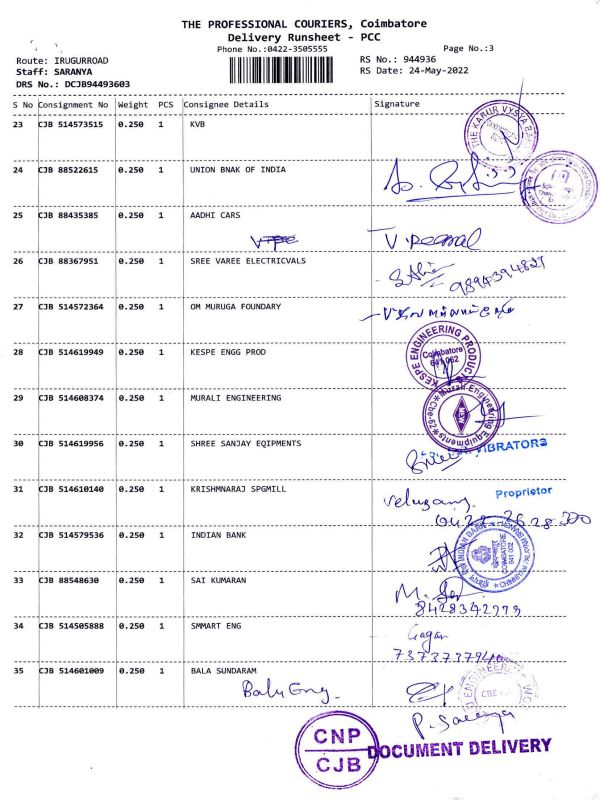 THE PROFESSIONAL COURIERS, Coimbatore
Delivery Runsheet - PCC
Phone No.:0422-3505555
Page No.:3
Route: IRUGURROAD
RS No.: 944936
Staff: SARANYA
RS Date: 24-May-2022
DRS No.: DCJB94493603
S No Consignment No Weight PCS Consignee Details Signature
23 CJB 514573515 0.250 1 KVB
THE KARUR VYSYA BANK
24 CJB 88522615 0.250 1 UNION BNAK OF INDIA
25 CJB 88435385 0.250 1 AADHI CARS
V Peomal
26 CJB 88367951 0.250 1 SREE VAREE ELECTRICVALS
9894394827
27 CJB 514572364 0.250 1 OM MURUGA FOUNDARY
28 CJB 514619949 0.250 1 KESPE ENGG PROD
KESPE ENGINEERING PRODUCTS
Coimbatore
641 062
29 CJB 514608374 0.250 1 MURALI ENGINEERING
Murali Engineering Equipments Cbe-62
30 CJB 514619956 0.250 1 SHREE SANJAY EQIPMENTS
VIBRATORS
31 CJB 514610140 0.250 1 KRISHMNARAJ SPGMILL
Proprietor
0422 2628300
32 CJB 514579536 0.250 1 INDIAN BANK
INDIAN BANK
COIMBATORE
641 002
33 CJB 88548630 0.250 1 SAI KUMARAN
8428342779
34 CJB 514505888 0.250 1 SMMART ENG
Gagan
7373737940
35 CJB 514601009 0.250 1 BALA SUNDARAM
Balu Eng.
CBE
P. Saranya
CNP
CJB
DOCUMENT DELIVERY